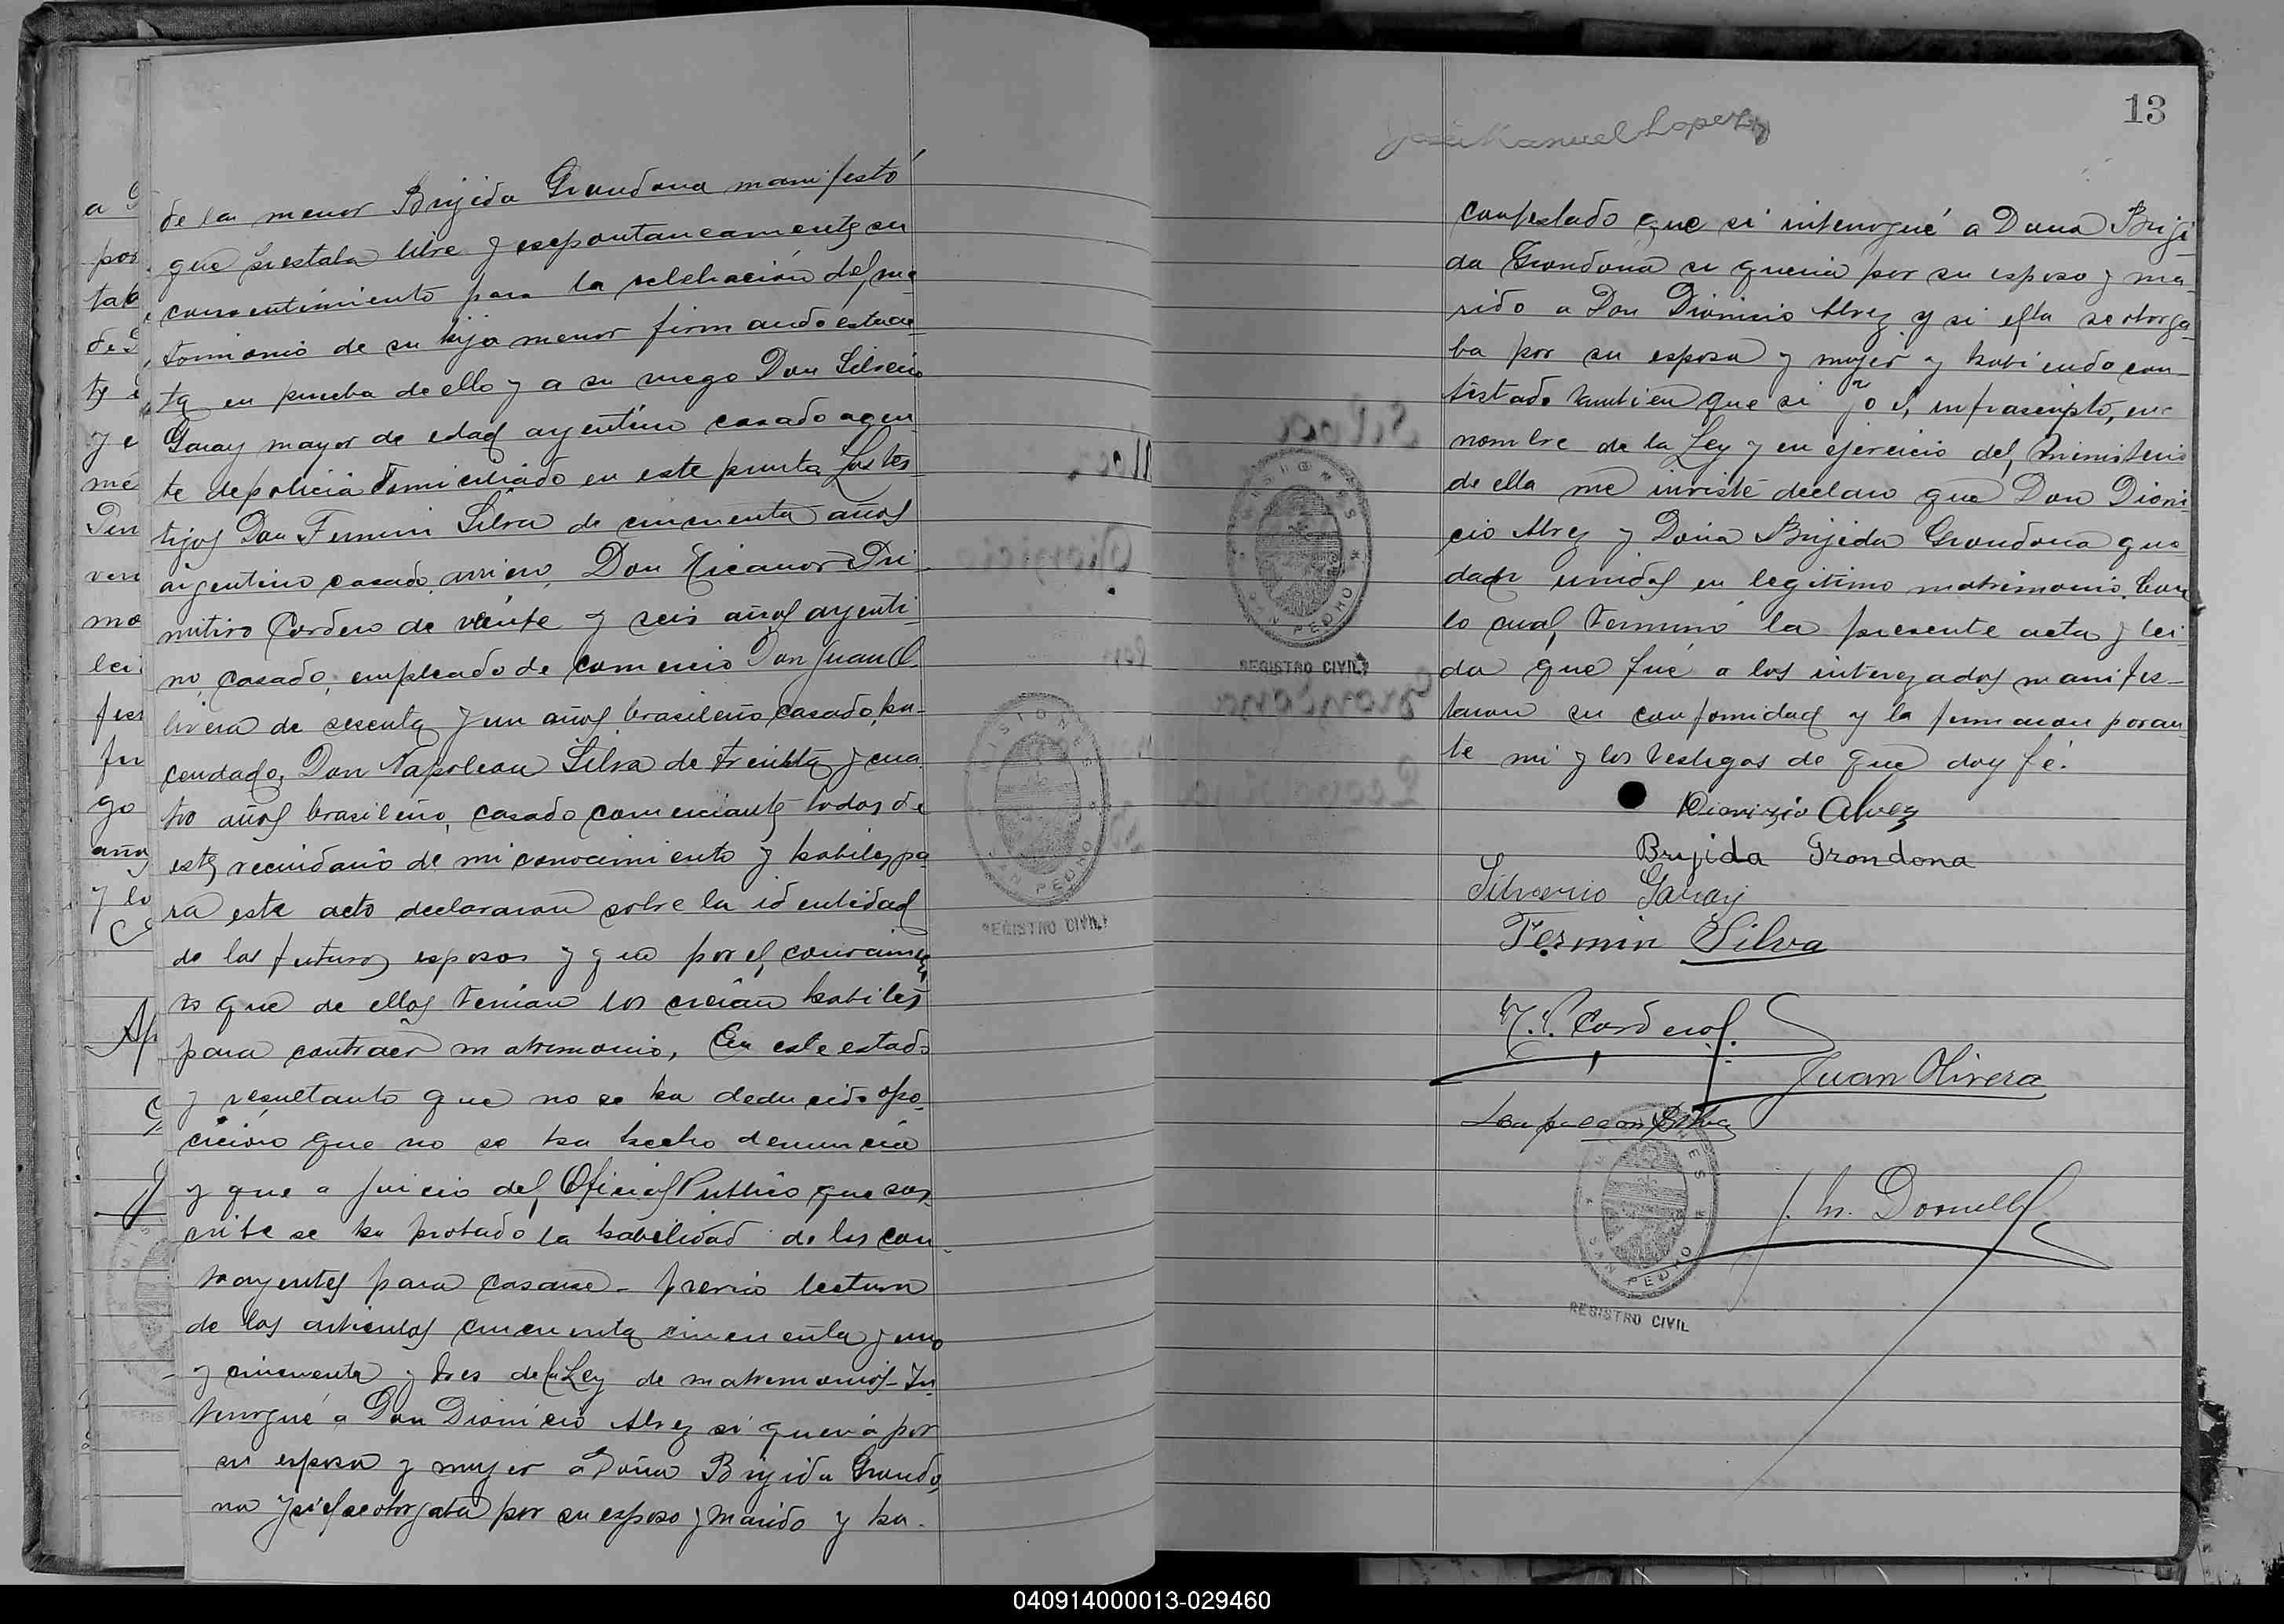 de la menor Brijida Grondona manifestó
que prestaba libre y espontaneamente su
consentimiento para la celebración del ma
trimonio de su hija menor firmando esta ac
ta en prueba de ello y a su ruego Don Silverio
Garay mayor de edad argentino casado agen
te de policia domiciliado en este punto Los tes
tigos Don Fermin Silva de cincuenta años
argentino casado, arriero, Don Nicanor Pri
mitivo Cordero de veinte y seis años argenti
no, casado, empleado de comercio Don Juan O
livera de sesenta y un años brasileño, casado, ha-
cendado, Don Napoleon Silva de treinta y cua
tro años brasileño, casado comerciante todos de
este vecindario de mi conocimiento y habiles pa
ra este acto declararon sobre la identidad
de los futuros esposos y que por el conocimien
to que de ellos tenian los creian habiles
para contraer matrimonio, En este estado
y resultanto que no se ha deducido opo
cición que no se ha hecho denuncia
y que a juicio del Oficial Publico que sus
cribe se ha probado la habilidad de los con-
trayentes para casarse - previa lectura
de los articulos cincuenta cincuenta y uno
y cincuenta y tres de la Ley de matrimonios - In
terrogué a Don Dionicio Alvez si queria por
su esposa y mujer a Doña Brijida Grondo
na y si el se otorgaba por su esposo y marido y ha-
MISIONES
SAN PEDRO
REGISTRO CIVIL
13
José Manuel Lopez
MISIONES
SAN PEDRO
REGISTRO CIVIL
contestado que si interrogué a Dona Briji
da Grondona si queria por su esposo y ma-
rido a Don Dionicio Alvez y si ella se otorga
ba por su esposa y mujer y habiendo con-
testado tambien que si yo el infrascripto, en
nombre de la Ley y en ejercicio del ministerio
de ella me invisté declaro que Don Dioni
cio Alvez y Doña Brijida Grondona que
dan unidos en legitimo matrimonio. Con
lo cual, terminó la presente acta y lei
da que fué a los interezados manifes-
taron su conformidad y la firmaron por an
te mi y los testigos de que doy fé.
Dionizio Alvez
Brijida Grondona
Silverio Garay
Fermin Silva
N. P. Cordero
Juan Olivera
Napoleon Silva
MISIONES
SAN PEDRO
REGISTRO CIVIL
040914000013-029460